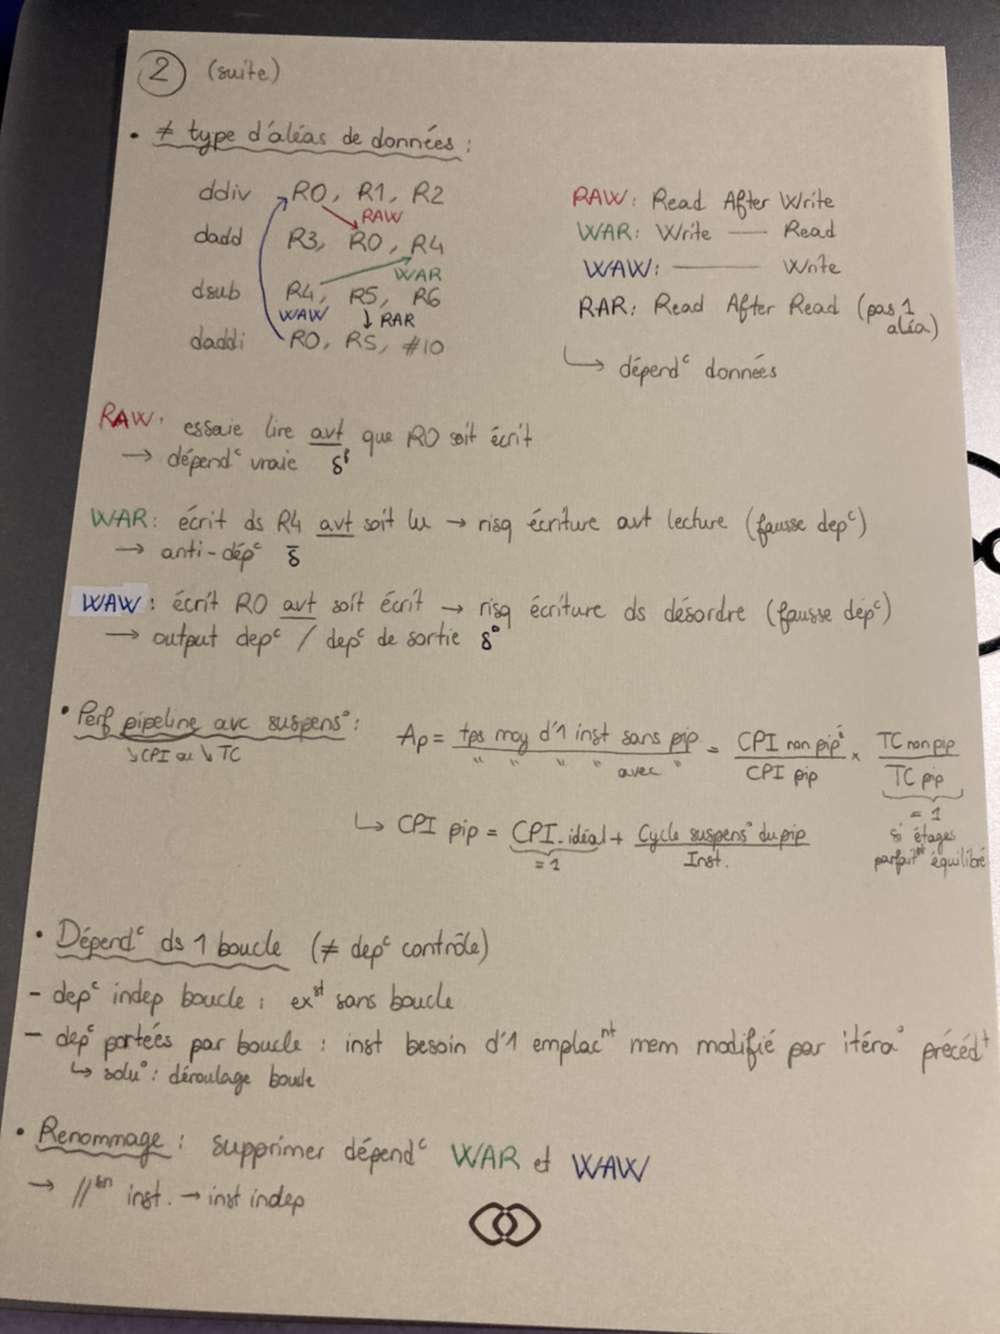 2 (suite)
• ≠ type d'aléas de données :
ddiv R0, R1, R2
RAW
dadd R3, R0, R4
WAR
dsub R4, R5, R6
WAW ↓ RAR
daddi R0, R5, #10
RAW: Read After Write
WAR: Write —— Read
WAW: ———— Write
RAR: Read After Read (pas 1
aléa)
↳ dépend^c données
RAW: essaie lire avt que R0 soit écrit
→ dépend^c vraie δ^f
WAR: écrit ds R4 avt soit lu → risq écriture avt lecture (fausse dep^c)
→ anti-dép^c δ̄
WAW: écrit R0 avt soit écrit → risq écriture ds désordre (fausse dép^c)
→ output dep^c / dep^c de sortie δ°
• Perf pipeline avc suspens°:
↘CPI ou ↘TC
Ap = tps moy d'1 inst sans pip = CPI non pip^é × TC non pip
" " " " avec " CPI pip TC pip
= 1
si étages
parfait^mt équilibré
↳ CPI pip = CPI idéal + Cycle suspens° du pip
= 1 Inst.
• Dépend^c ds 1 boucle (≠ dep^c contrôle)
- dep^c indep boucle : ex^st sans boucle
- dep^c portées par boucle : inst besoin d'1 emplac^nt mem modifié par itéra° précéd^t
↳ solu° : déroulage boucle
• Renommage : supprimer dépend^c WAR et WAW
→ //^sm inst. → inst indep